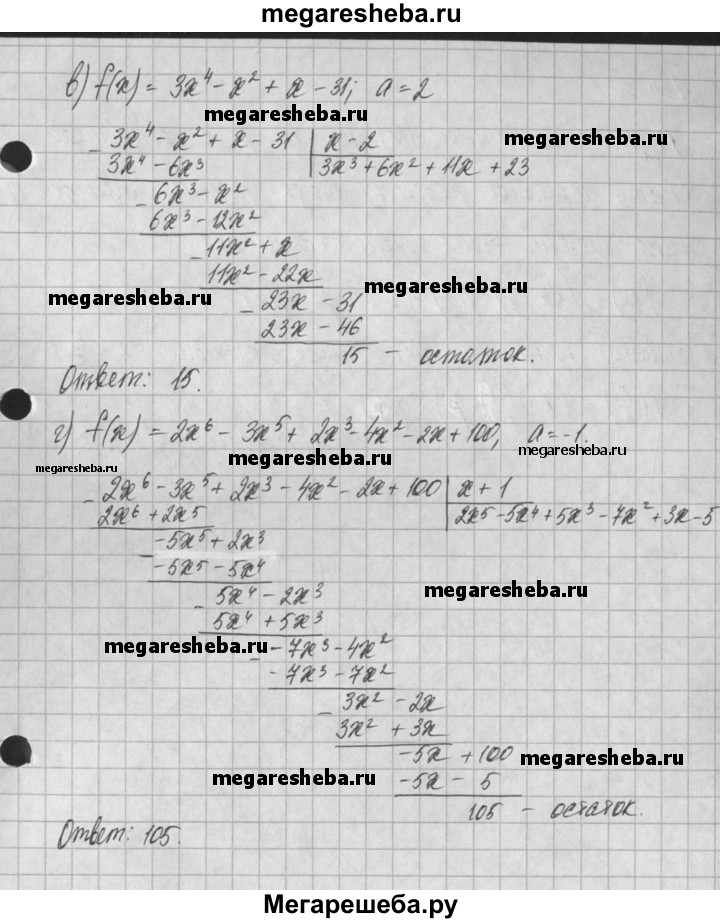 megaresheba.ru
в) f(x) = 3x⁴ - x² + x - 31; a = 2
megaresheba.ru
- 3x⁴ - x² + x - 31 | x - 2
megaresheba.ru
3x⁴ - 6x³ | 3x³ + 6x² + 11x + 23
- 6x³ - x²
6x³ - 12x²
- 11x² + x
11x² - 22x
megaresheba.ru
megaresheba.ru
- 23x - 31
23x - 46
15 - остаток.
Ответ: 15.
г) f(x) = 2x⁶ - 3x⁵ + 2x³ - 4x² - 2x + 100, a = -1.
megaresheba.ru
megaresheba.ru
megaresheba.ru
- 2x⁶ - 3x⁵ + 2x³ - 4x² - 2x + 100 | x + 1
2x⁶ + 2x⁵ | 2x⁵ - 5x⁴ + 5x³ - 7x² + 3x - 5
- -5x⁵ + 2x³
-5x⁵ - 5x⁴
megaresheba.ru
- 5x⁴ - 2x³
5x⁴ + 5x³
megaresheba.ru
- -7x³ - 4x²
-7x³ - 7x²
- 3x² - 2x
3x² + 3x
-5x + 100
megaresheba.ru
megaresheba.ru
-5x - 5
105 - остаток.
Ответ: 105.
Мегарешеба.ру